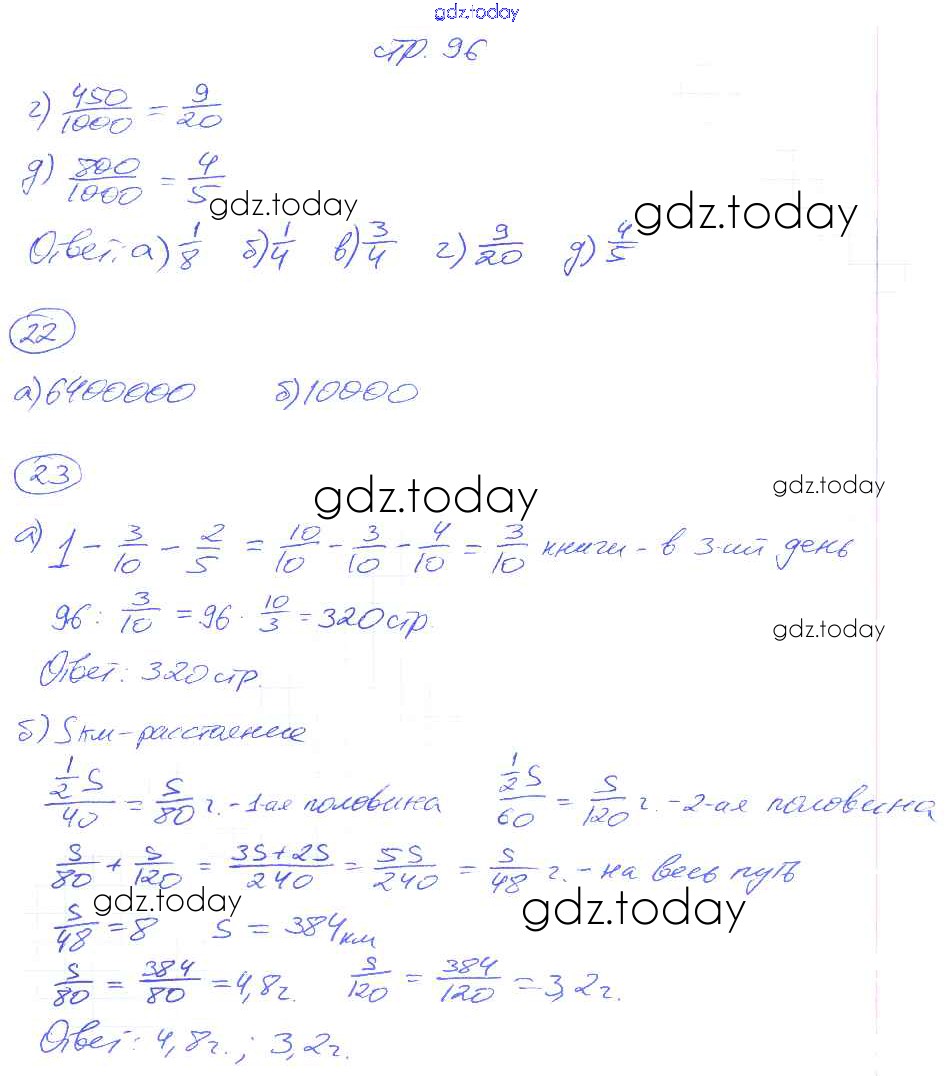 gdz.today
стр. 96
г) 450/1000 = 9/20
д) 800/1000 = 4/5
gdz.today gdz.today
Ответ: а) 1/8 б) 1/4 в) 3/4 г) 9/20 д) 4/5
22
а) 6400000 б) 10000
23
gdz.today gdz.today
а) 1 - 3/10 - 2/5 = 10/10 - 3/10 - 4/10 = 3/10 книги - в 3-ий день
96 : 3/10 = 96 · 10/3 = 320 стр.
gdz.today
Ответ: 320 стр.
б) S км - расстояние
1/2 S/40 = S/80 г. - 1-ая половина 1/2 S/60 = S/120 г. - 2-ая половина
S/80 + S/120 = 3S+2S/240 = 5S/240 = S/48 г. - на весь путь
gdz.today gdz.today
S/48 = 8 S = 384 км
S/80 = 384/80 = 4,8 г. S/120 = 384/120 = 3,2 г.
Ответ: 4,8 г.; 3,2 г.